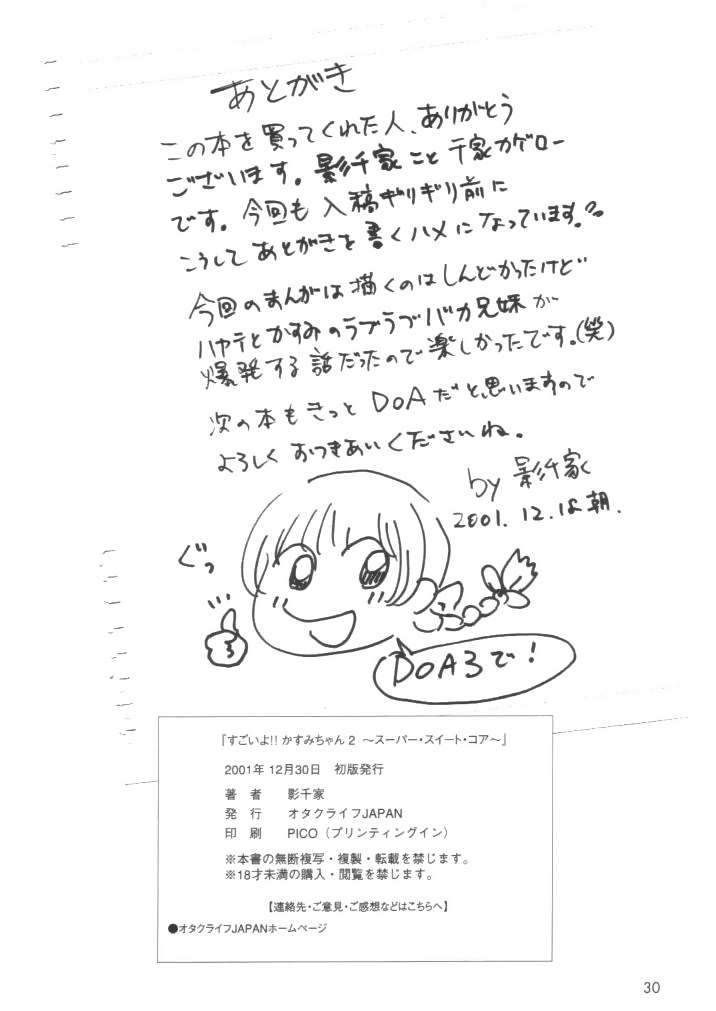 あとがき
この本を買ってくれた人、ありがとう
ございます。影千家こと千家カゲロー
です。今回も入稿ギリギリ前に
こうしてあとがきを書くハメになっています。
今回のまんがは描くのはしんどかったけど
ハヤテとかすみのラブラブバカ兄妹が
爆発する話だったので楽しかったです。(笑)
次の本もきっとDOAだと思いますので
よろしくおつきあいくださいね。
by 影千家
2001.12.18朝.
ぐっ
DOA3で!
「すごいよ!! かすみちゃん 2 〜スーパー・スイート・コア〜」
2001年 12月30日 初版発行
著 者 影千家
発 行 オタクライフJAPAN
印 刷 PICO（プリンティングイン）
※本書の無断複写・複製・転載を禁じます。
※18才未満の購入・閲覧を禁じます。
【連絡先・ご意見・ご感想などはこちらへ】
●オタクライフJAPANホームページ
30